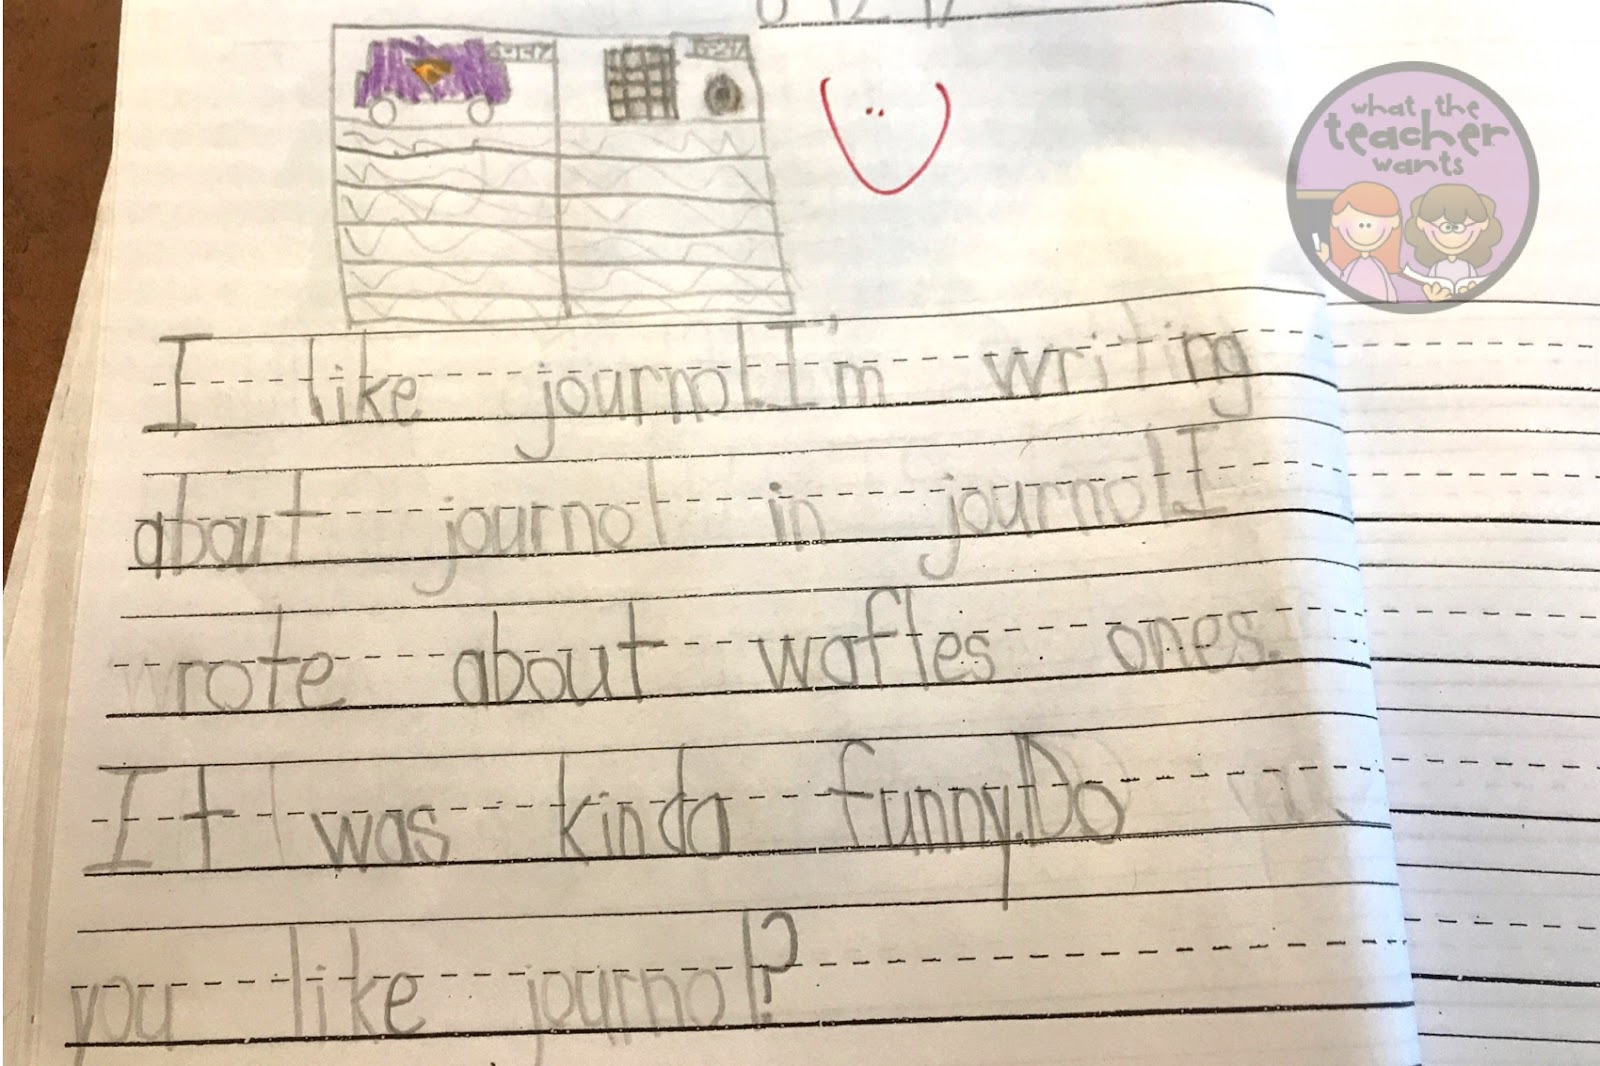 what the
teacher
wants
I like journol.I'm writing
about journol in journol.I
wrote about wafles ones.
It was kinda funny.Do
you like journol?